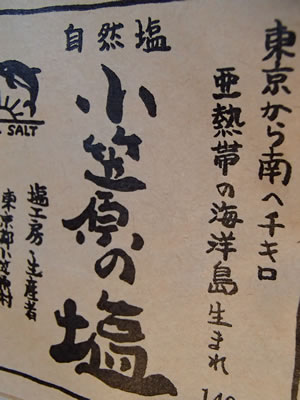 東京から南へ千キロ
亜熱帯の海洋島生まれ
自然塩
小笠原の塩
SALT
塩工房
生産者
東京都小笠原村